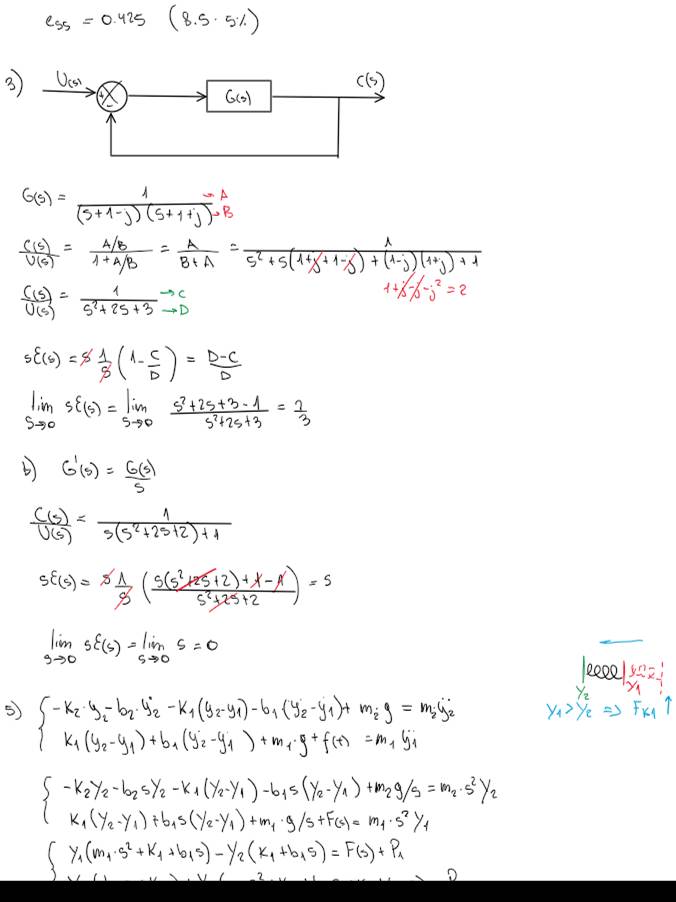 ess = 0.425 (8.5 · 5%)
3) U(s) + - G(s) C(s)
G(s) = 1 / ((s+1-j)(s+1+j)) → A → B
C(s)/U(s) = (A/B)/(1+A/B) = A/(B+A) = 1/(s²+s(1+j+1-j)+(1-j)(1+j)+1)
1+j-j-j² = 2
C(s)/U(s) = 1/(s²+2s+3) → C → D
sE(s) = s 1/s (1 - C/D) = (D-C)/D
lim s→0 sE(s) = lim s→0 (s²+2s+3-1)/(s²+2s+3) = 2/3
b) G'(s) = G(s)/s
C(s)/U(s) = 1/(s(s²+2s+2)+1)
sE(s) = s 1/s ((s(s²+2s+2)+1-1)/(s²+2s+2)) = s
lim s→0 sE(s) = lim s→0 s = 0
y2 y1
y1 > y2 ⇒ Fk1 ↑
5) { -k2·y2 - b2·ẏ2 - k1(y2-y1) - b1(ẏ2-ẏ1) + m2g = m2ÿ2
k1(y2-y1) + b1(ẏ2-ẏ1) + m1·g + f(t) = m1ÿ1
{ -k2Y2 - b2sY2 - k1(Y2-Y1) - b1s(Y2-Y1) + m2g/s = m2·s²Y2
k1(Y2-Y1) + b1s(Y2-Y1) + m1·g/s + F(s) = m1·s²Y1
{ Y1(m1·s²+k1+b1s) - Y2(k1+b1s) = F(s) + P1